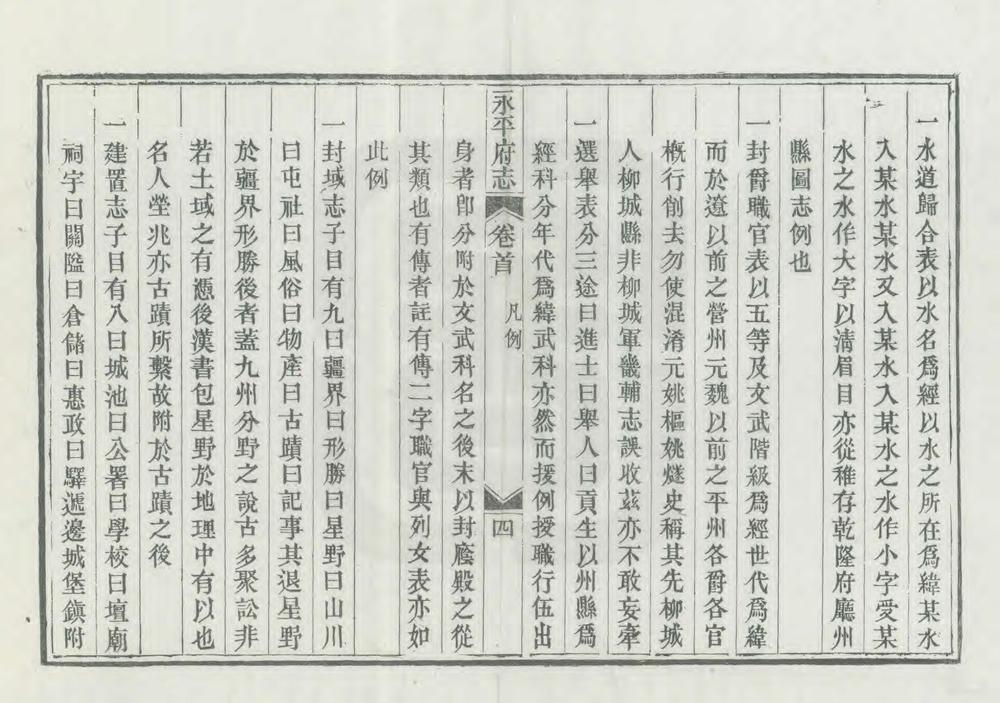 一水道歸合表以水名爲經以水之所在爲緯某水
入某水某水又入某水入某水之水作小字受某
水之水作大字以清眉目亦從稚存乾隆府廳州
縣圖志例也
一封爵職官表以五等及文武階級爲經世代爲緯
而於遼以前之營州元魏以前之平州各爵各官
槪行削去勿使混淆元姚樞姚燧史稱其先柳城
人柳城縣非柳城軍畿輔志誤收茲亦不敢妄牽
一選舉表分三途曰進士曰舉人曰貢生以州縣爲
經科分年代爲緯武科亦然而援例授職行伍出
永平府志 卷首 凡例 四
身者卽分附於文武科名之後末以封廕殿之從
其類也有傳者註有傳二字職官與列女表亦如
此例
一封域志子目有九曰疆界曰形勝曰星野曰山川
曰屯社曰風俗曰物產曰古蹟曰記事其退星野
於疆界形勝後者蓋九州分野之說古多聚訟非
若土域之有憑後漢書包星野於地理中有以也
名人塋兆亦古蹟所繫故附於古蹟之後
一建置志子目有八曰城池曰公署曰學校曰壇廟
祠宇曰關隘曰倉儲曰惠政曰驛遞邊城堡鎮附